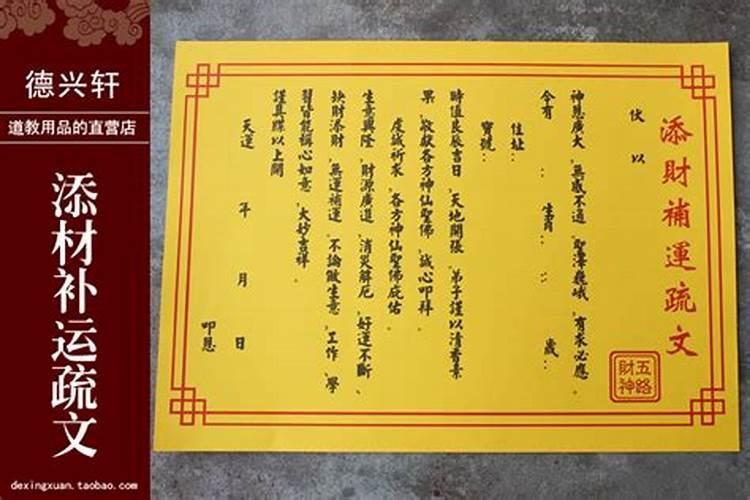 德兴轩
道教用品的直营店
添材补运疏文
dexingxuan.taobao.com
添財補運疏文
五路財神
伏以
神恩廣大，無感不通，聖澤巍峨，有求必應。
今有：生肖：：歲：
住址：
寶號：
時值良辰吉日，天地開張，弟子謹以清香素
果，敬獻各方神仙聖佛，誠心叩拜
虔誠祈求，各方神仙聖佛庇佑
生意興隆，財源廣進，消災解厄，好運不斷、
缺財添財，無運補運，不論做生意，工作，學
習皆能稱心如意，大妙吉祥。
謹具牒以上聞
天運年月日
叩恩